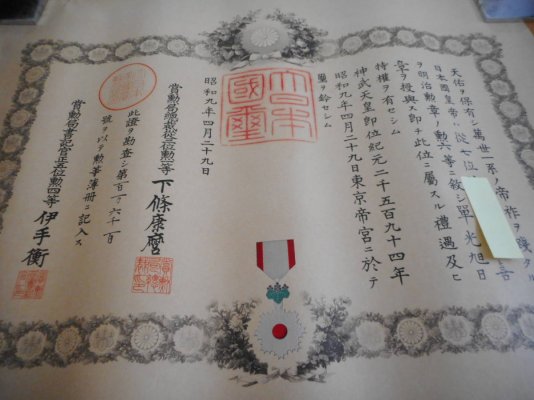 天佑ヲ保有シ萬世一系ノ帝祚ヲ踐タル
日本國皇帝ハ 位 喜
ヲ明治勲章ノ勲六等ニ敍シ單光旭日
章ヲ授與ス即チ此位ニ屬スル禮遇及ヒ
特權ヲ有セシム
神武天皇即位紀元二千五百九十四年
昭和九年四月二十九日東京帝宮ニ於テ
璽ヲ鈐セシム
大日本
國璽
昭和九年四月二十九日
賞勲局總裁 位勲 等 下條康麿
此證ヲ勘査シ第
號ヲ以テ勲等簿冊ニ記入ス
賞勲局書記官正五位勲四等 伊手衡